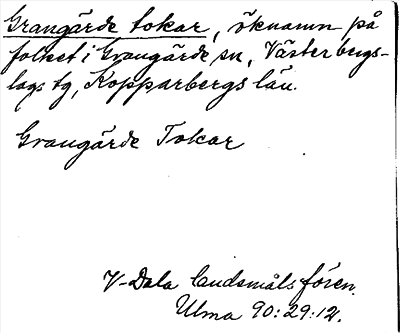 Grangärde tokar, öknamn på
folket i Grangärde sn, Västerbergs-
lags tg, Kopparbergs län.
Grangärde Tokar
V-Dala landsmålsfören.
Ulma 90:29:12.